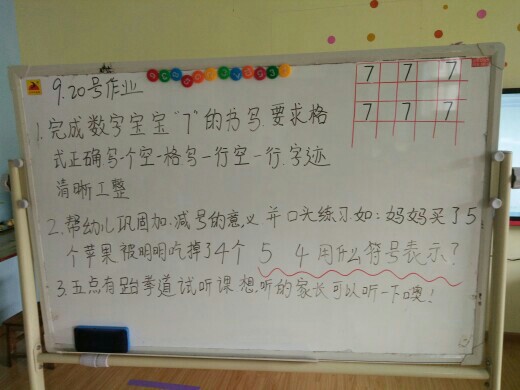 9.20号作业
7 7 7
7 7 7
1.完成数字宝宝"7"的书写.要求格
式正确写一个空一格写一行空一行.字迹
清晰工整
2.帮幼儿巩固加.减号的意义 并口头练习如:妈妈买了5
个苹果被明明吃掉了4个 5 4用什么符号表示?
3.五点有跆拳道试听课想.听的家长可以听一下噢!